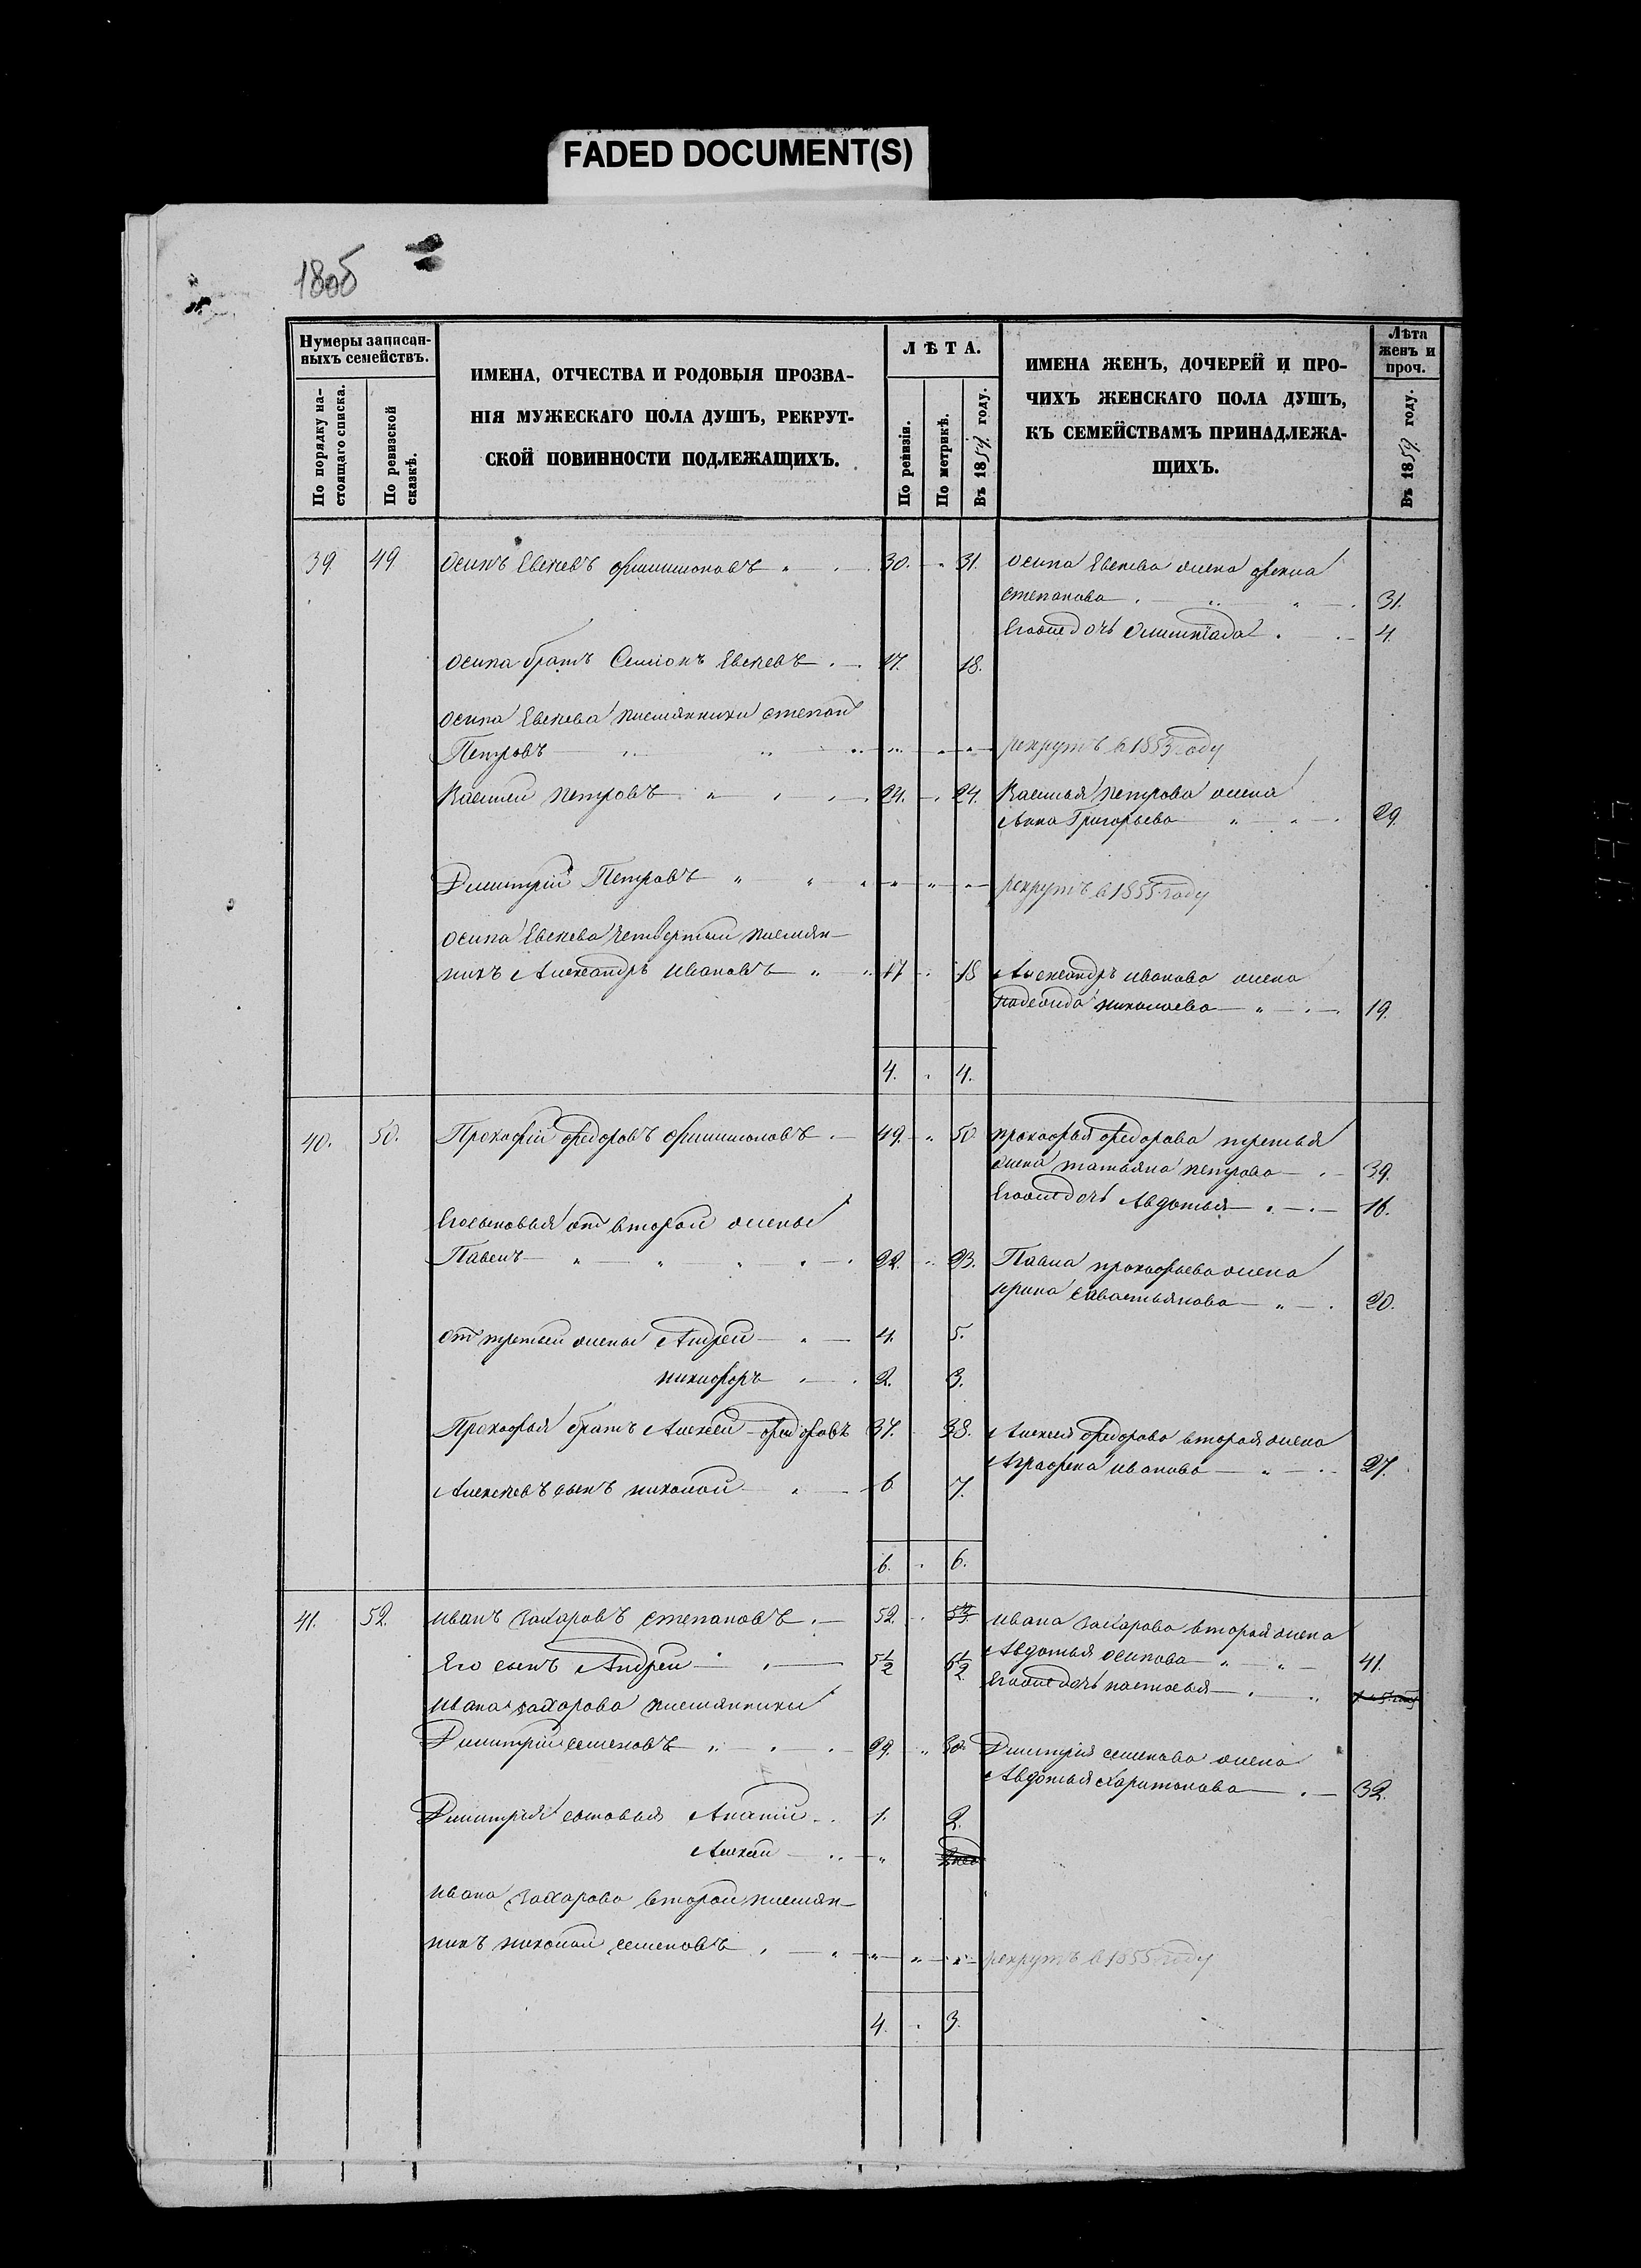 FADED DOCUMENT(S)
180об
Нумеры записан-
ныхъ семействъ.
По порядку на-
стоящаго списка.
По ревизской
сказкѣ.
ИМЕНА, ОТЧЕСТВА И РОДОВЫЯ ПРОЗВА-
НІЯ МУЖЕСКАГО ПОЛА ДУШЪ, РЕКРУТ-
СКОЙ ПОВИННОСТИ ПОДЛЕЖАЩИХЪ.
ЛѢТА.
По ревизіи.
По метрикѣ.
Въ 1859 году.
ИМЕНА ЖЕНЪ, ДОЧЕРЕЙ И ПРО-
ЧИХЪ ЖЕНСКАГО ПОЛА ДУШЪ,
КЪ СЕМЕЙСТВАМЪ ПРИНАДЛЕЖА-
ЩИХЪ.
Лѣта
женъ и
проч.
Въ 1859 году.
39 49 Осипъ Евсеевъ Филимоновъ 30. 31. Осипа Евсеева жена
Степанова 31.
Егоже дочь Олимпіада 4.
Осипа братъ Семіонъ Евсеевъ 17. 18.
Осипа Евсеева племянники Степанъ
Петровъ рекрутъ в 1853 году
Василий Петровъ 24. 24. Василья Петрова жена
Анна Григорьева 29.
Дмитрій Петровъ рекрутъ в 1855 году
Осипа Евсеева четвертый племян-
никъ Александръ Ивановъ 17 18 Александръ Иванова жена
Надежда Николаева 19.
4. 4.
40. 50. Прокофій Федоровъ Филимоновъ 49. 50 Прокофья Федорова третья
жена Татьяна Петрова 39.
Егоже дочь Авдотья 16.
Его сыновья от второй жены
Павелъ 22. 23. Павла Прокофьева жена
Ирина Савастьянова 20.
От третьей жены Андрей 4. 5.
Никифоръ 2. 3.
Прокофья братъ Алексей Федоровъ 37. 38. Алексея Федорова вторая жена
Аграфена Иванова 27.
Алексеевъ сынъ Николай 6 7.
6. 6.
41. 52. Иванъ Захаровъ Степановъ 52. Ивана Захарова вторая жена
Авдотья Осипова 41.
Его сынъ Андрей 5½ 6½ Егоже дочь Настасья
Ивана Захарова племянники
Дмитрій Семеновъ 29. 30. Дмитрія Семенова жена
Авдотья Харитонова 32.
Дмитрія сыновья 1. 2.
Ивана Захарова второй племян-
никъ Николай Семеновъ рекрутъ в 1855 году
4. 3.